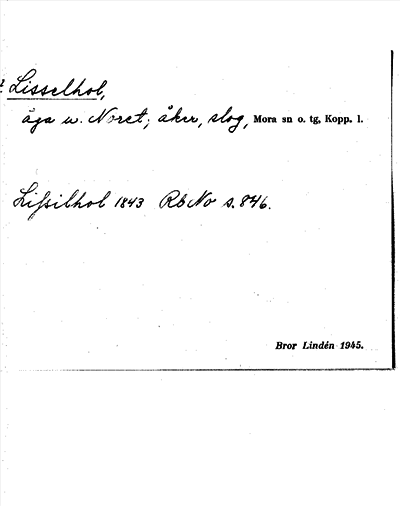 Lisselhol,
äga u. Noret; åker, slog, Mora sn o. tg, Kopp. l.
Lissilhol 1843 RbNo s. 846.
Bror Lindén 1945.